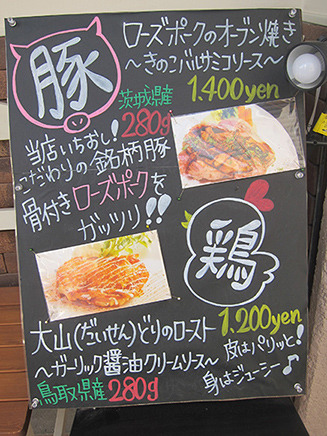 豚
ローズポークのオーブン焼き
～きのこバルサミコソース～
茨城県産
280g
1.400yen
当店いちおし!
こだわりの銘柄豚
骨付きローズポークを
ガッツリ!!
鶏
大山(だいせん)どりのロースト
1.200yen
～ガーリック醤油クリームソース～
鳥取県産280g
皮はパリッと!
身はジューシー♪